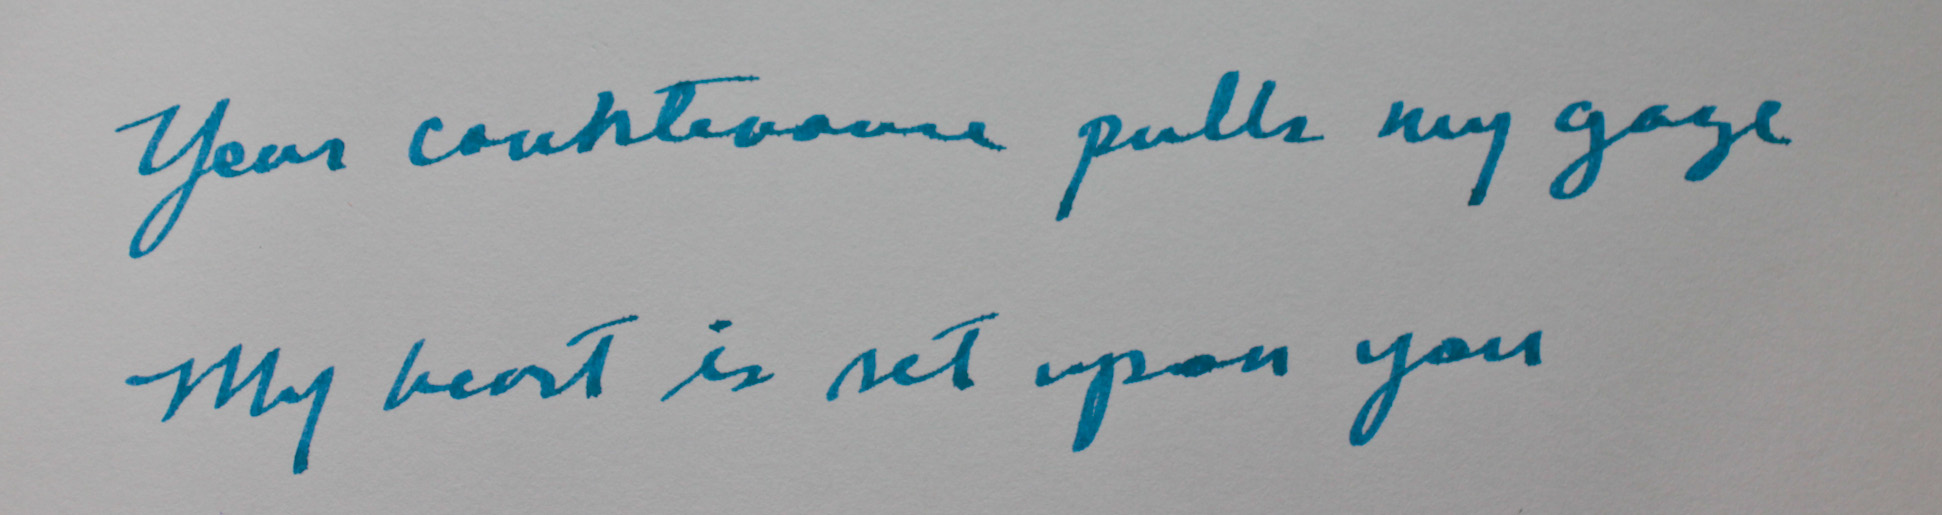 Your countenance pulls my gaze
My heart is set upon you